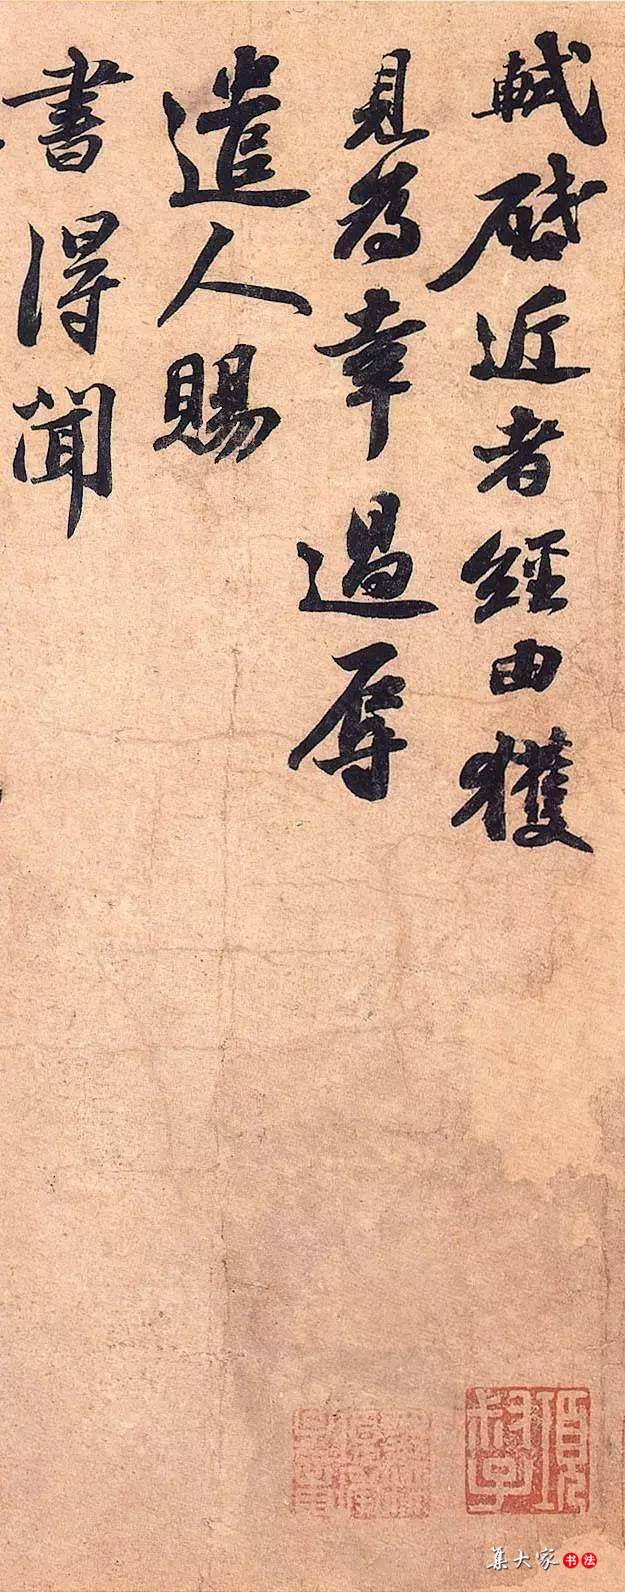 軾啟近者經由獲
見為幸過辱
遣人賜
書得聞
集大家書法